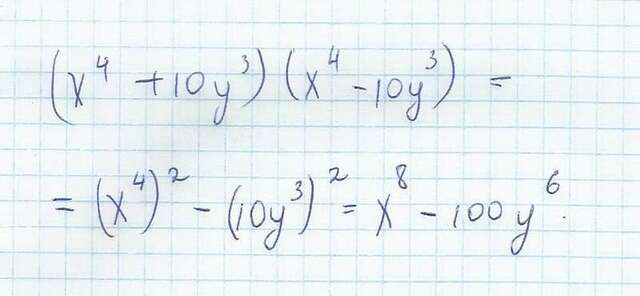 (x⁴ + 10y³)(x⁴ - 10y³) =
= (x⁴)² - (10y³)² = x⁸ - 100y⁶.